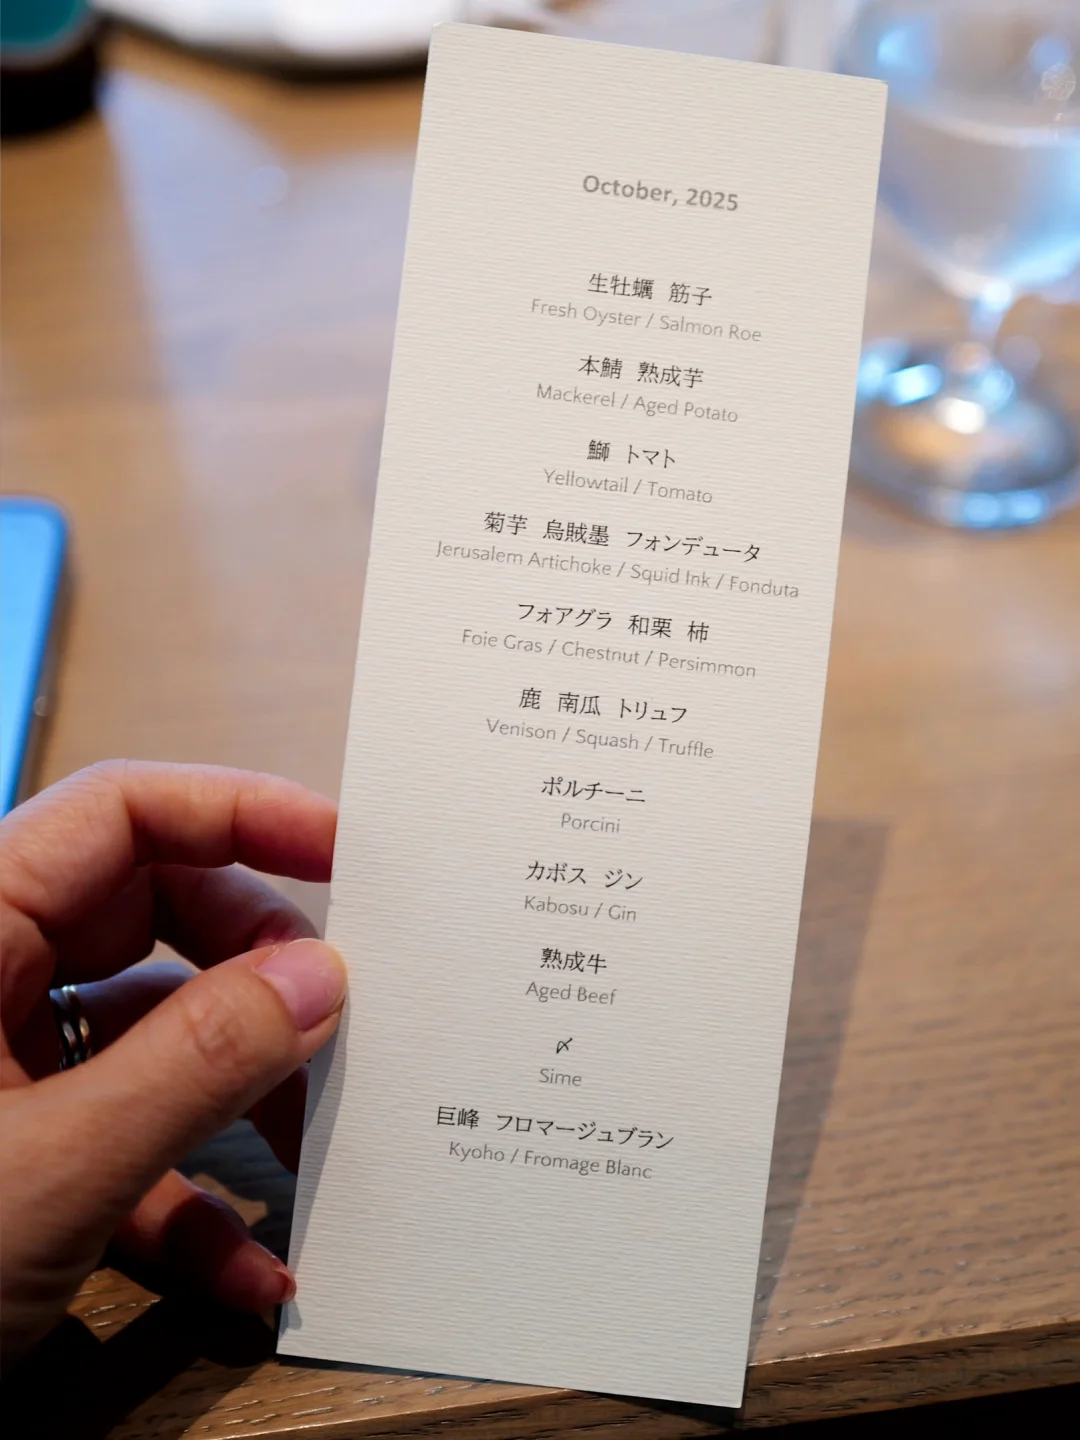 October, 2025
生牡蠣 筋子
Fresh Oyster / Salmon Roe
本鯖 熟成芋
Mackerel / Aged Potato
鰤 トマト
Yellowtail / Tomato
菊芋 烏賊墨 フォンデュータ
Jerusalem Artichoke / Squid Ink / Fonduta
フォアグラ 和栗 柿
Foie Gras / Chestnut / Persimmon
鹿 南瓜 トリュフ
Venison / Squash / Truffle
ポルチーニ
Porcini
カボス ジン
Kabosu / Gin
熟成牛
Aged Beef
〆
Sime
巨峰 フロマージュブラン
Kyoho / Fromage Blanc